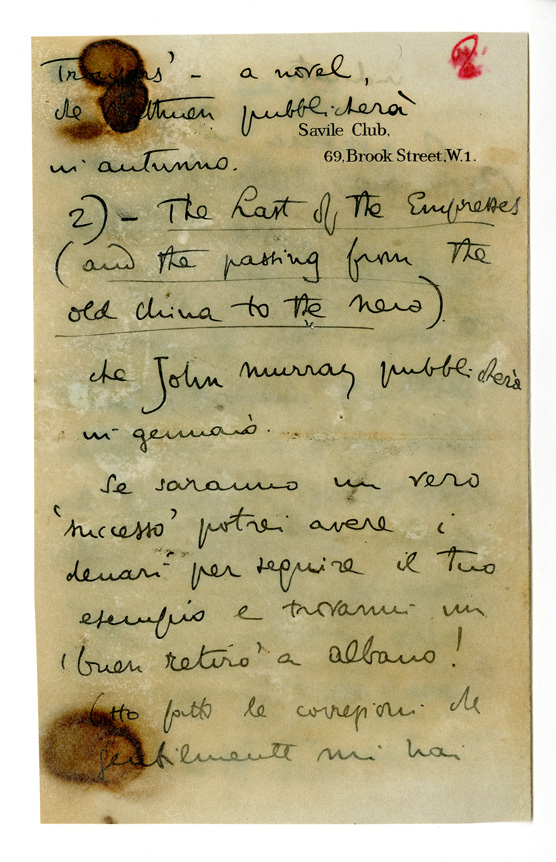 2
' - a novel,
che Methuen pubblicherà
Savile Club,
69, Brook Street, W.1.
in autunno.
2) - The Last of the Empresses
(and the passing from the
old China to the new).
che John Murray pubblicherà
in gennaio.
Se saranno un vero
'successo' potrei avere i
denari per seguire il tuo
esempio e trovarmi un
'buen retiro' a Albano!
(Ho fatto le correzioni che
gentilmente mi hai